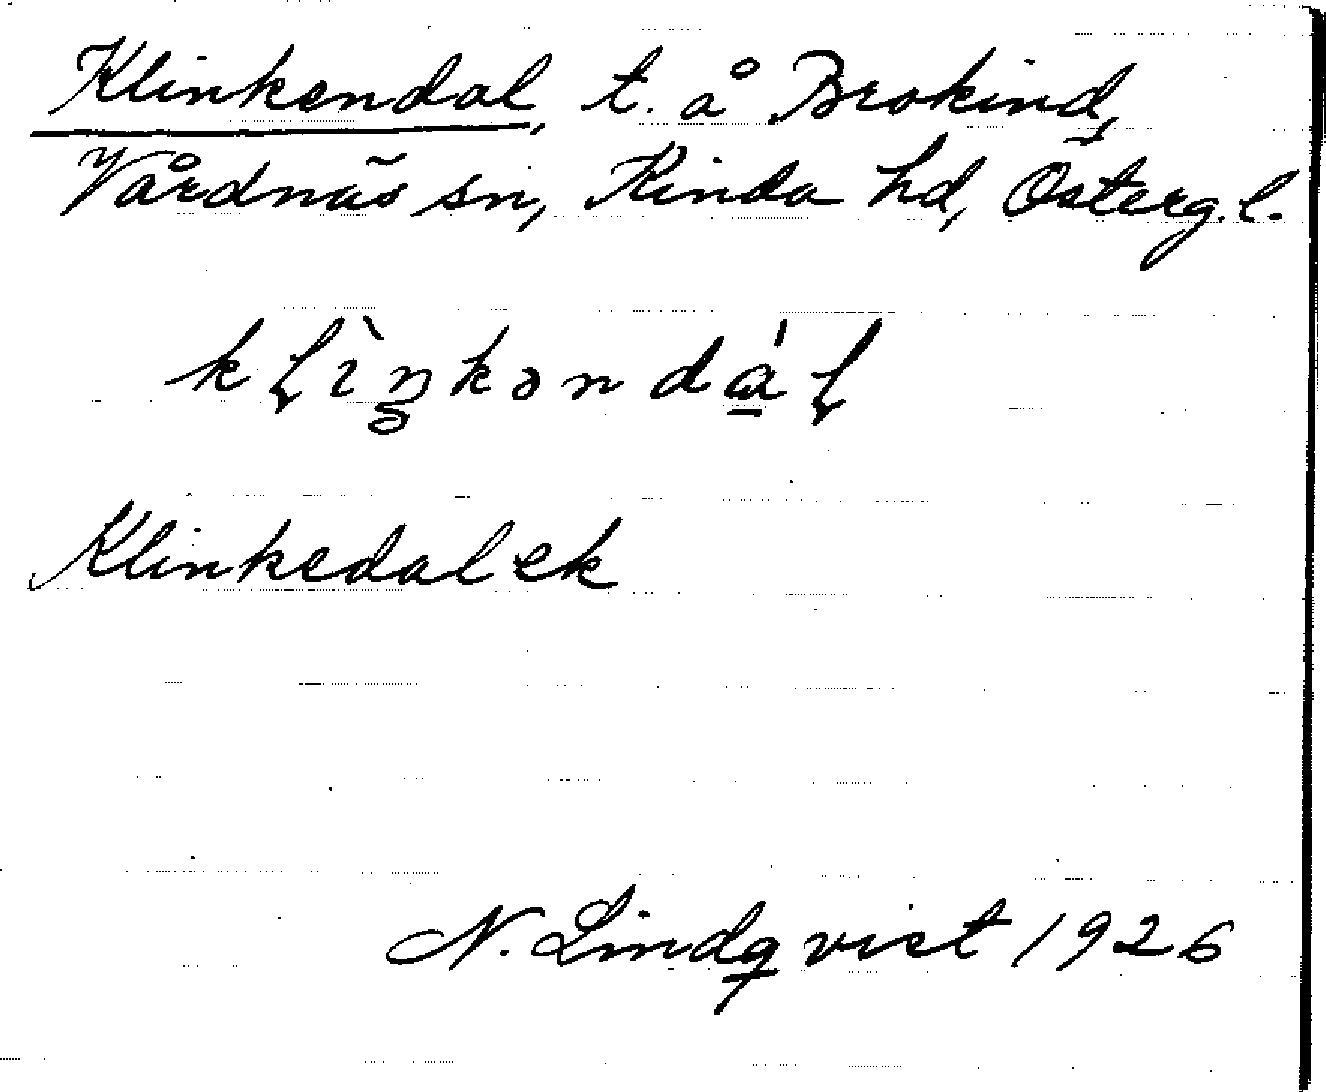 Klinkendal, t. å Brokind,
Vårdnäs sn, Kinda hd, Österg.l.
Klinkedal ek
N. Lindqvist 1926